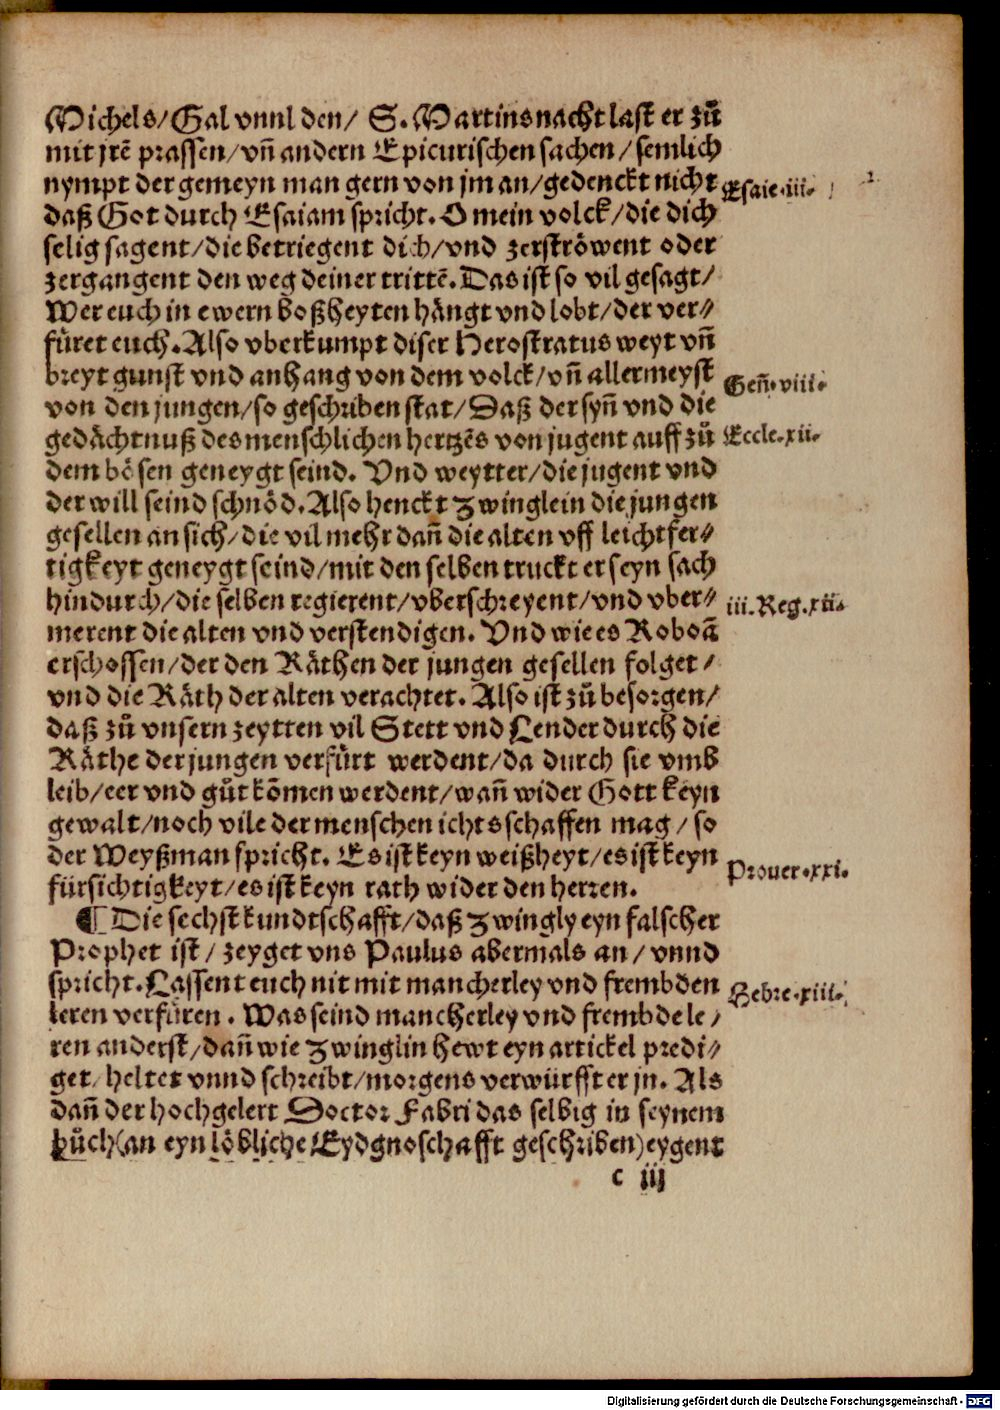 Michels/Gal vnnl den/ S. Martins nacht last er zů
mit jrẽ prassen/vñ andern Epicurischen sachen/semlich
nympt der gemeyn man gern von jm an/gedenckt nicht
Esaie.iii.
daß Got durch Esaiam spricht. O mein volck/die dich
selig sagent/die betriegent dich/vnd zerströwent oder
zergangent den weg deiner trittẽ. Das ist so vil gesagt/
Wer euch in ewern boßheyten hängt vnd lobt/der ver⸗
fůret euch. Also vberkumpt diser Herostratus weyt vñ
breyt gunst vnd anhang von dem volck/vñ allermeyst
Geñ.viii.
von den jungen/so geschriben stat/Daß der syñ vnd die
gedächtnuß des menschlichen hertzẽs von jugent auff zů
Eccle.xii.
dem bösen geneygt seind. Vnd weytter/die jugent vnd
der will seind schnöd. Also henckt Zwinglein die jungen
gesellen an sich/die vil mehr dañ die alten vff leichtfer⸗
tigkeyt geneygt seind/mit den selben truckt er seyn sach
hindurch/die selben regierent/vberschreyent/vnd vber⸗
iii.Reg.xii.
merent die alten vnd verstendigen. Vnd wie es Roboã
erschossen/der den Räthen der jungen gesellen folget/
vnd die Räth der alten verachtet. Also ist zů besorgen/
daß zů vnsern zeytten vil Stett vnd Lender durch die
Räthe der jungen verfůrt werdent/da durch sie vmb
leib/eer vnd gůt kõmen werdent/wañ wider Gott keyn
gewalt/noch vile der menschen ichts schaffen mag/so
der Weyßman spricht. Es ist keyn weißheyt/es ist keyn
Prouer.xxi.
fürsichtigkeyt/es ist keyn rath wider den herren.
¶ Die sechst kundtschafft/daß Zwingly eyn falscher
Prophet ist/ zeyget vns Paulus abermals an/ vnnd
spricht. Lassent euch nit mit mancherley vnd frembden
Hebre.xiii.
leren verfüren. Was seind mancherley vnd frembde le/
ren anderst/dañ wie Zwinglin hewt eyn artickel predi⸗
get/heltet vnnd schreibt/morgens verwürfft er jn. Als
dañ der hochgelert Doctor Fabri das selbig in seynem
bůch(an eyn löbliche Eydgnoschafft geschriben)eygent
c iij
Digitalisierung gefördert durch die Deutsche Forschungsgemeinschaft - DFG